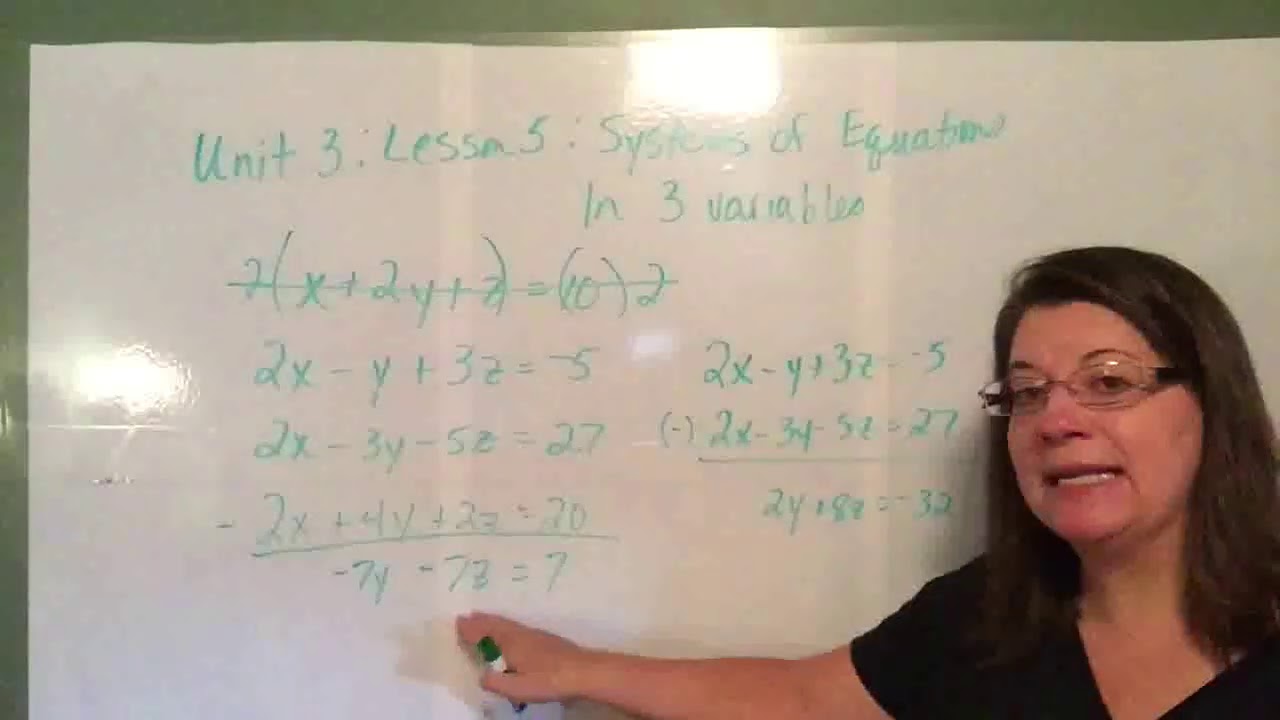 Unit 3: Lesson 5: Systems of Equations
In 3 variables
2(x+2y+z)=(10)2
2x-y+3z=-5
2x-3y-5z=27
- 2x+4y+2z=20
-7y-7z=7
2x-y+3z=-5
(-) 2x-3y-5z=27
2y+8z=-32